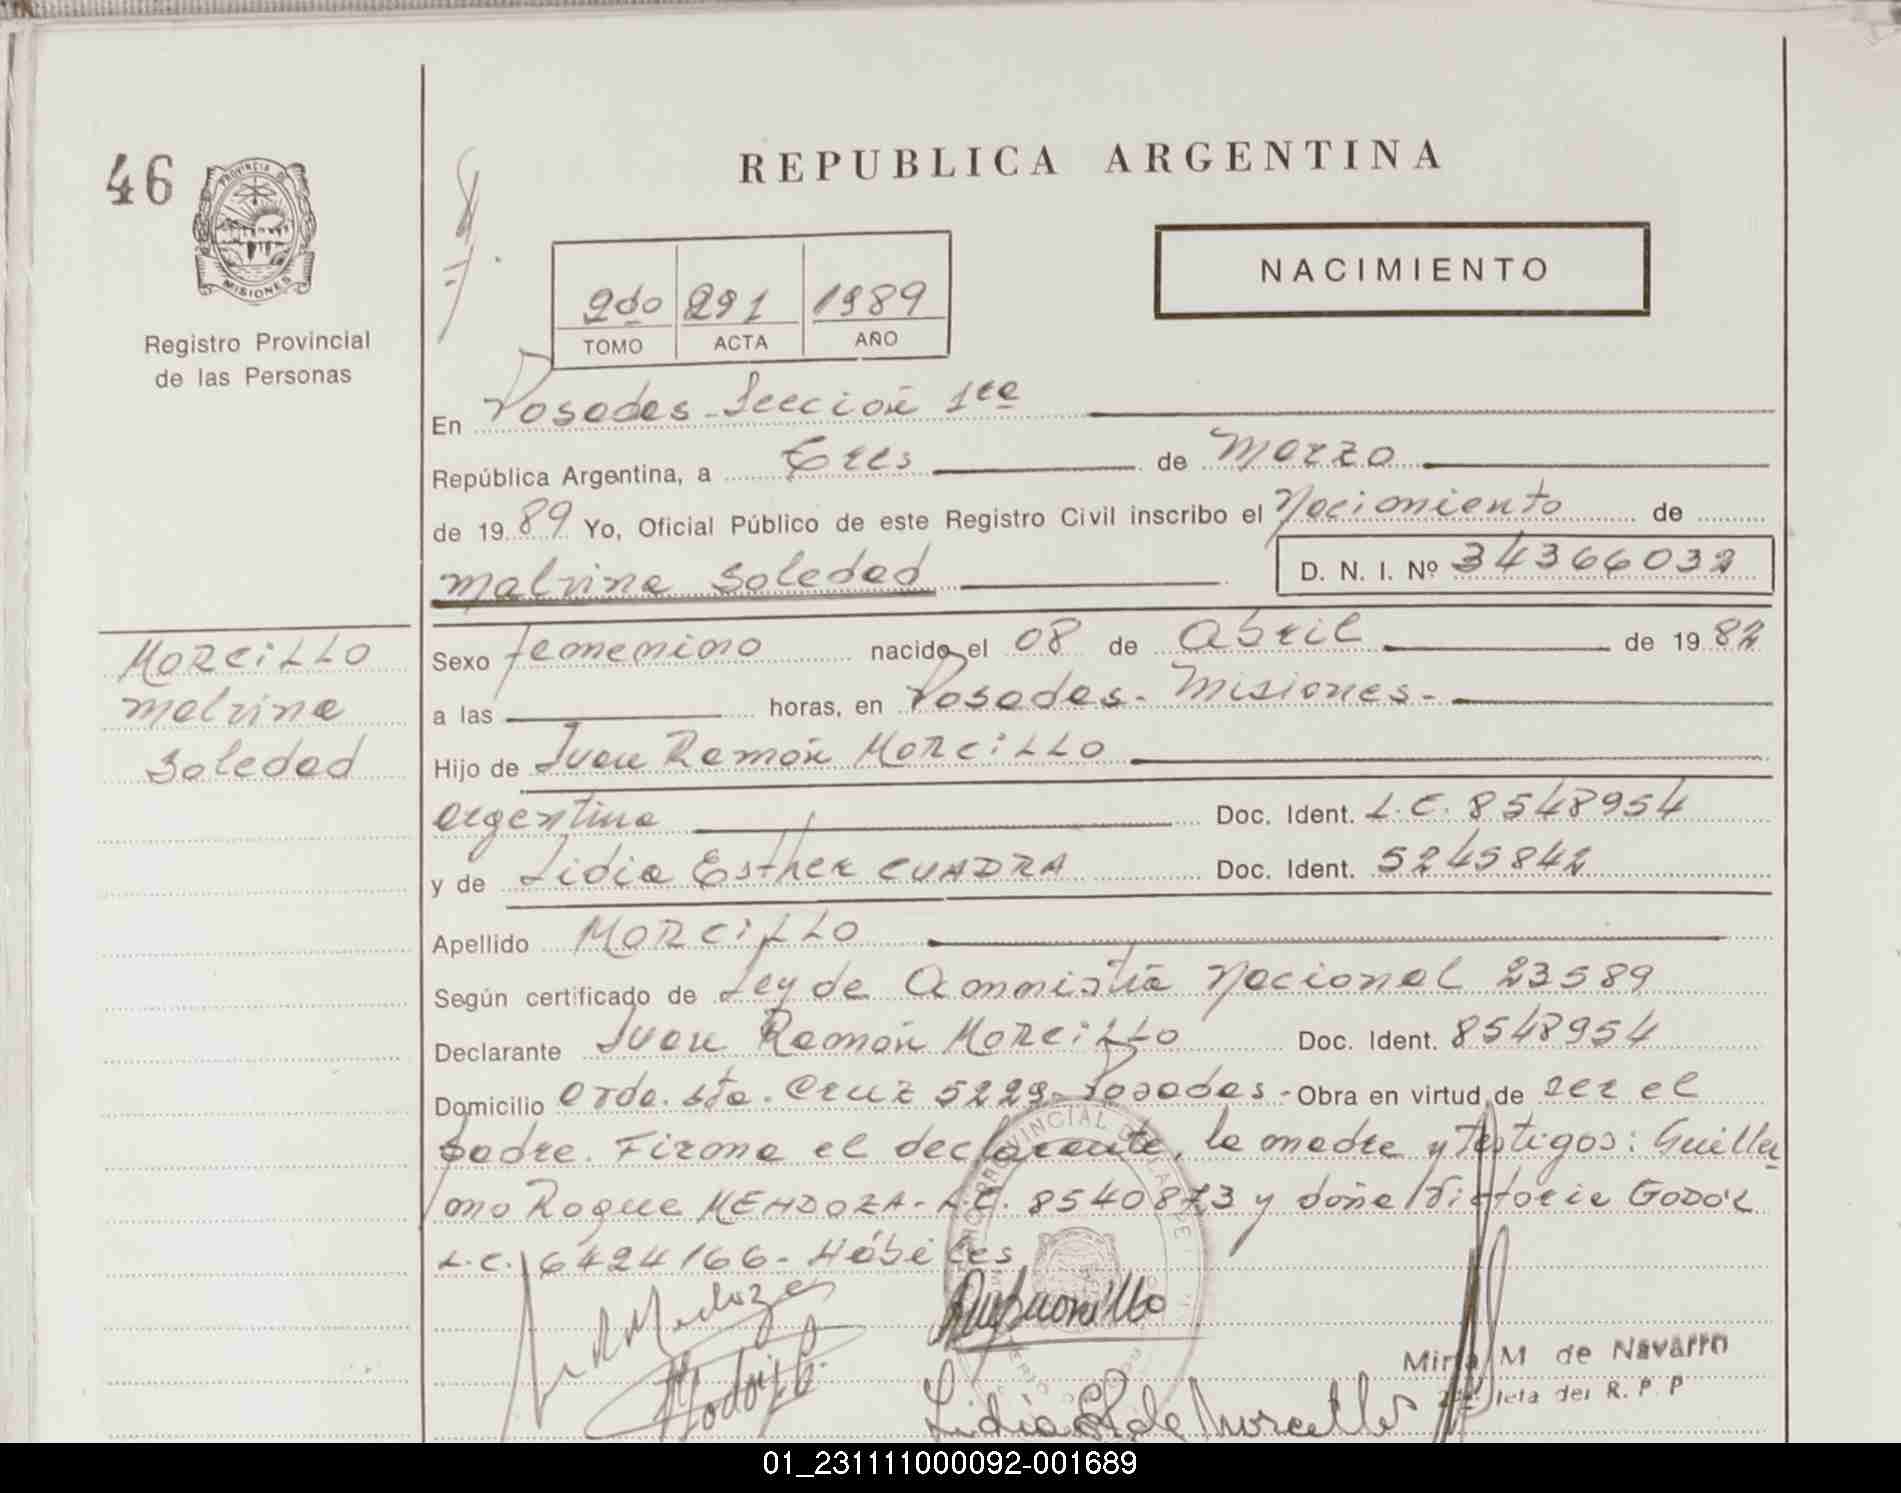 46
PROVINCIA DE
MISIONES
Registro Provincial
de las Personas
REPUBLICA ARGENTINA
NACIMIENTO
2do 291 1989
TOMO ACTA AÑO
En Posadas - Sección 1ra
República Argentina, a Tres de Marzo
de 1989 Yo, Oficial Público de este Registro Civil inscribo el Nacimiento de
Malvina Soledad D. N. I. Nº 34366032
MORCILLO
Malvina
Soledad
Sexo femenino nacido el 08 de Abril de 1982
a las horas, en Posadas - Misiones -
Hijo de Juan Ramón MORCILLO
argentina Doc. Ident. L.E. 8548954
y de Lidia Esther CUADRA Doc. Ident. 5245842
Apellido MORCILLO
Según certificado de Ley de Amnistía Nacional 23589
Declarante Juan Ramón MORCILLO Doc. Ident. 8548954
Domicilio Avda. Sta. Cruz 5229 - Posadas - Obra en virtud de ser el
padre. Firma el declarante, la madre y Testigos: Guiller
mo Roque MENDOZA - L.E. 8540873 y doña Victoria GODOY
L.C. 6424166 - Hábiles
Lidia de Morcillo
M de Navarro
del R. P. P
01_231111000092-001689